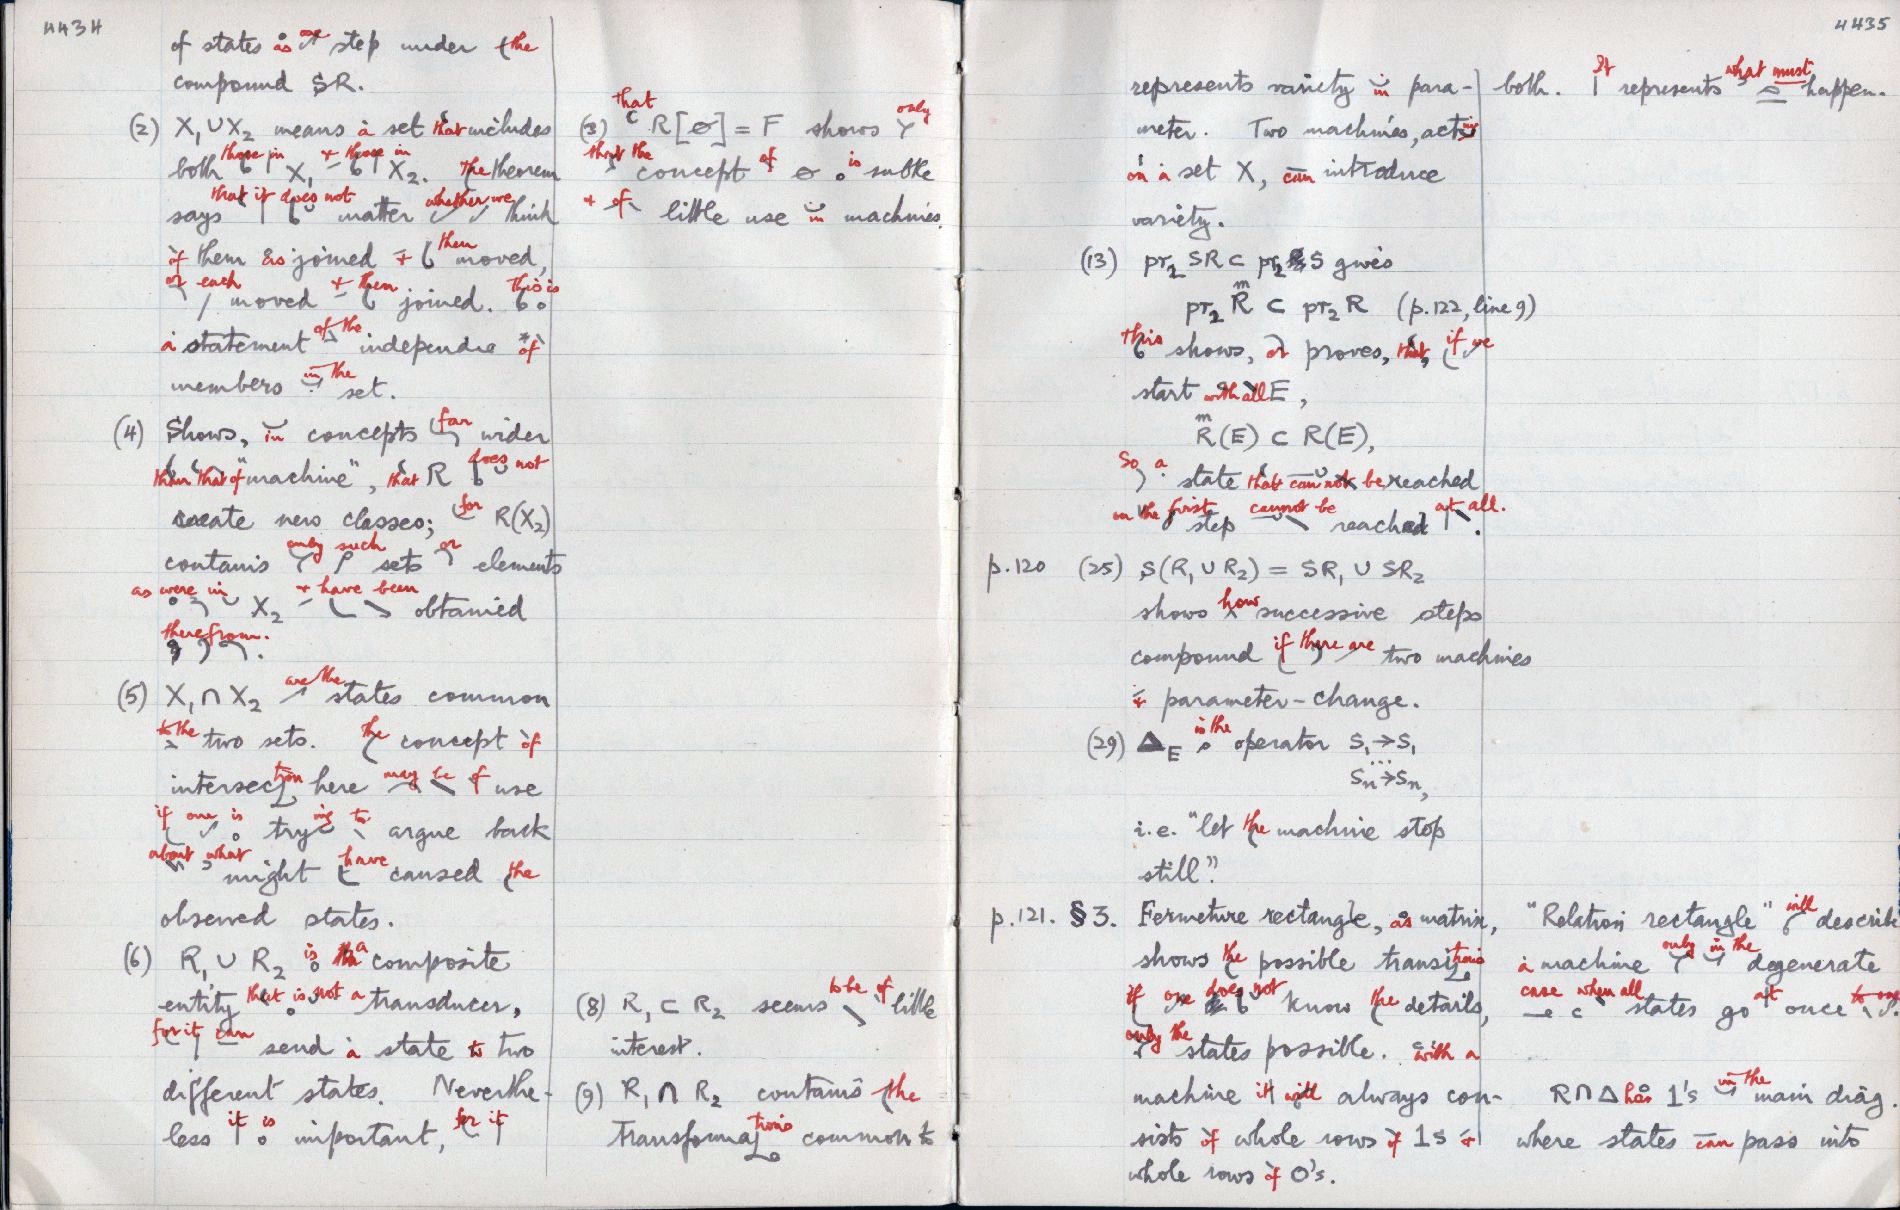 4434
of states as one step under the
compound SR.
(2) X₁∪X₂ means a set that includes
both those in X₁ + those in X₂. The theorem
says that it does not matter whether we think
of them as joined + then moved,
or each moved + then joined. This is
a statement of the independce of
members in the set.
(4) Shows, in concepts far wider
than that of "machine", that R does not
create new classes; for R(X₂)
contains only such sets or elements
as were in X₂ + have been obtained
therefrom.
(5) X₁∩X₂ are the states common
to the two sets. The concept of
intersection here may be of use
if one is trying to argue back
about what might have caused the
observed states.
(6) R₁∪R₂ is a composite
entity that is not a transducer,
for it can send a state to two
different states. Neverthe-
less it is important, for it
(3) that R[∅] = F shows only
that the concept of ∅ is subtle
+ of little use in machines.
(8) R₁ ⊂ R₂ seems to be of little
interest.
(9) R₁∩R₂ contains the
transformations common to
4435
represents variety in para-
meter. Two machines, acting
on a set X, can introduce
variety.
(13) pr₂ SR ⊂ pr₂ S gives
pr₂ R^m ⊂ pr₂ R (p.122, line 9)
This shows, or proves, that, if we
start with all E,
R^m(E) ⊂ R(E),
So a state that can not be reached
in the first step cannot be reached at all.
p.120 (25) S(R₁∪R₂) = SR₁∪SR₂
shows how successive steps
compound if there are two machines
+ parameter-change.
(29) Δ_E is the operator S₁→S₁
...
Sₙ→Sₙ,
i.e. "let the machine stop
still".
p.121. §3. Fermeture rectangle, as matrix,
shows the possible transitions
if one does not know the details,
only the states possible. With a
machine it will always con-
sists of whole rows of 1s +
whole rows of 0's.
both. It represents what must happen.
"Relation rectangle" will describe
a machine only in the degenerate
case when all states go at once to one.
R∩Δ has 1's in the main diag.
where states can pass into